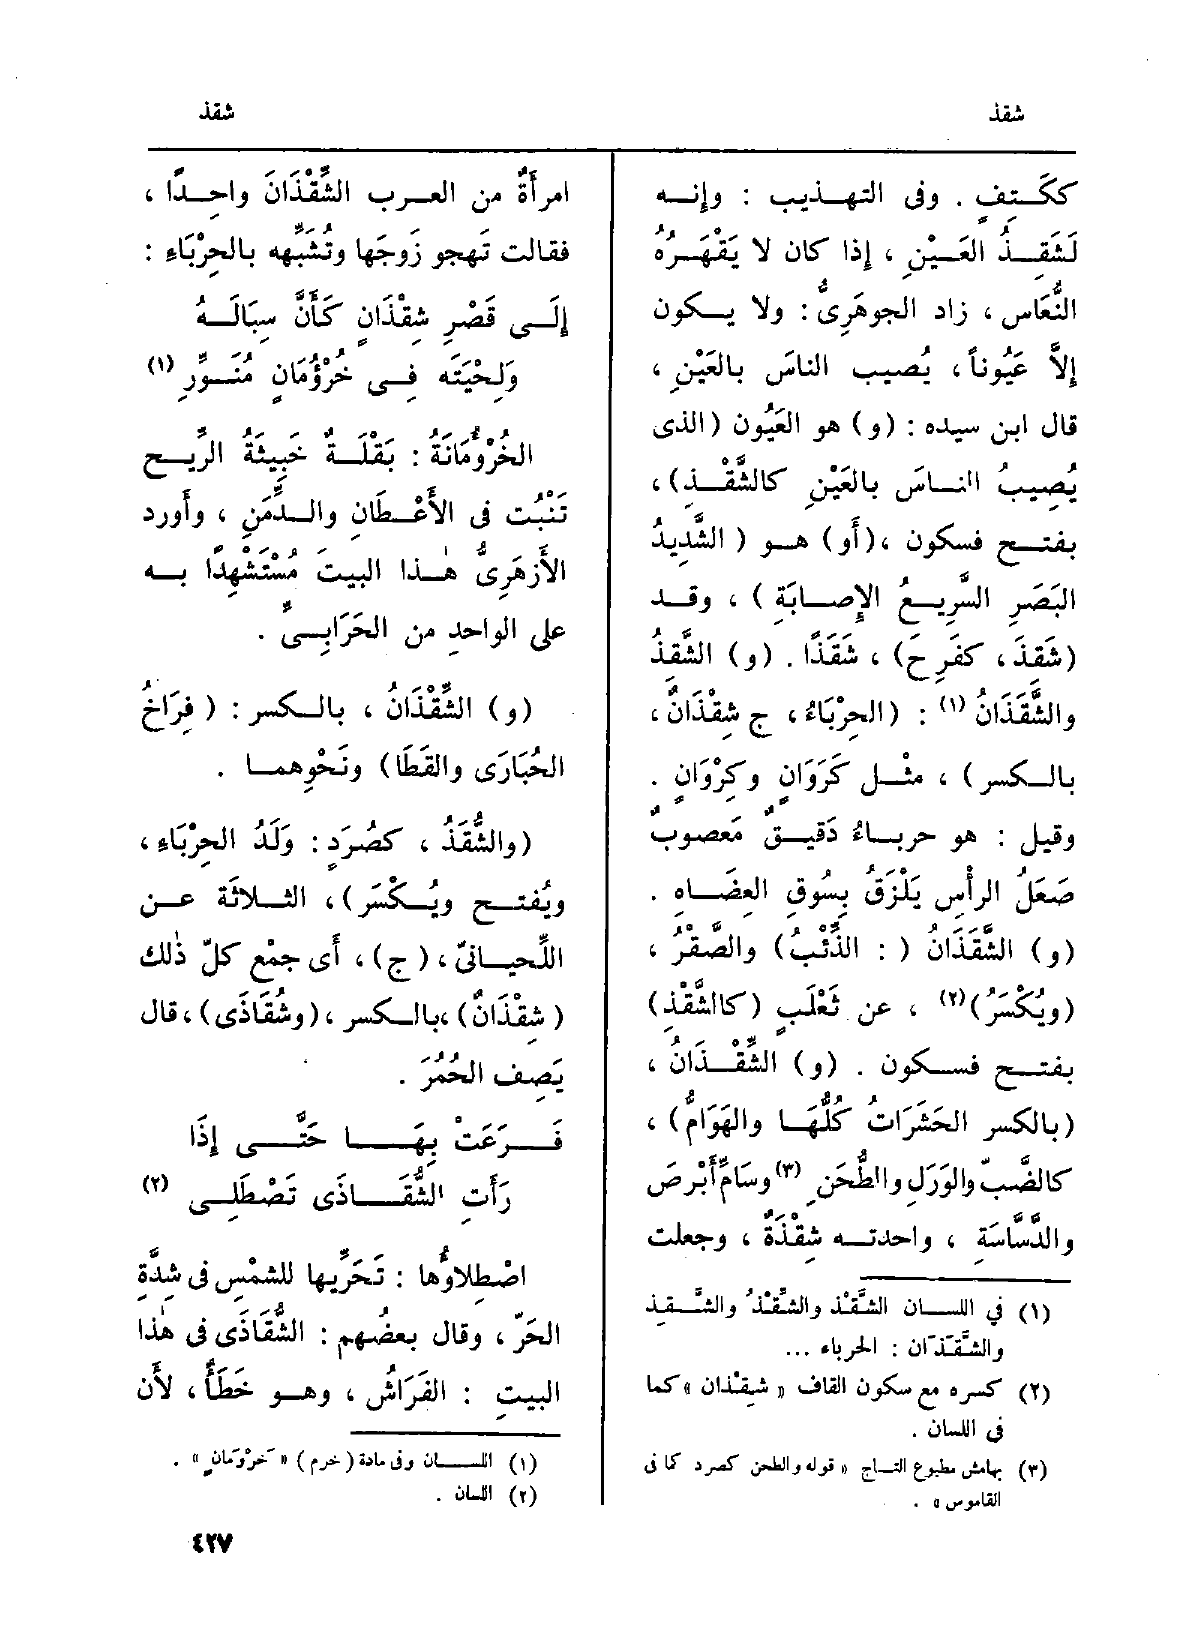 شقذ
شقذ
ككَتِفٍ . وفى التهذيب : وإنه
لَشَقِذُ العَيْنِ ، إذا كان لا يَقْهَرُهُ
النُّعَاس ، زاد الجوهَرِىُّ : ولا يكون
إِلاَّ عَيُوناً ، يُصيب الناسَ بالعَيْنِ ،
قال ابن سيده : (و) هو العَيُون (الذى
يُصِيبُ الناسَ بالعَيْنِ كالشَّقْذِ) ،
بفتح فسكون ، (أو) هو (الشَّدِيدُ
البَصَرِ السَّرِيعُ الإِصابَةِ) ، وقد
(شَقِذَ ، كفَرِحَ) ، شَقَذًا . (و) الشَّقِذُ
والشَّقَذَانُ (١) : (الحِرْبَاءُ ، ج شِقْذَانٌ ،
بالكسر) ، مثْل كَرَوَانٍ وكِرْوَانٍ .
وقيل : هو حرباءٌ دَقيقٌ مَعصوبٌ
صَعَلُ الرأْسِ يَلْزَقُ بِسُوقِ العضَاه .
(و) الشَّقَذَانُ ( : الذِّئْبُ) والصَّقْرُ ،
(ويُكْسَرُ) (٢) ، عن ثَعْلَبٍ (كالشَّقْذِ)
بفتح فسكون . (و) الشِّقْذَانُ ،
(بالكسر الحَشَرَاتُ كُلُّهَا والهَوَامُّ) ،
كالضَّبّ والوَرَلِ والطُّحَنِ (٣) وسَامِّ أَبْرَصَ
والدَّسَّاسَةِ ، واحدته شِقْذَةٌ ، وجعلت
(١) في اللسان الشَّقْذ والشِّقْذُ والشَّقِذ
والشَّقَذَان : الحرباء ...
(٢) كسره مع سكون القاف « شِقْذان » كما
فى اللسان .
(٣) بهامش مطبوع التاج « قوله والطحن كصرد كما فى
القاموس » .
امرأَةٌ من العرب الشِّقْذَانَ واحِدًا ،
فقالت تَهجو زَوجَها وتُشَبِّهه بالحِرْبَاءِ :
إِلَى قَصْرِ شِقْذَانٍ كَأَنَّ سِبَالَهُ
وَلِحْيَتَه فِى خُرْؤُمَانٍ مُنَوِّرِ (١)
الخُرْؤُمَانَةُ : بَقْلَةٌ خَبِيثَةُ الرِّيح
تَنْبُت فى الأَعْطَانِ والدِّمَنِ ، وأَورد
الأَزهَرِىُّ هٰذا البيتَ مُسْتَشْهِدًا به
على الواحِدِ من الحَرَابِىِّ .
(و) الشِّقْذَانُ ، بالكسر : (فِرَاخُ
الحُبَارَى والقَطَا) ونَحْوِهما .
(والشُّقَذُ ، كصُرَدٍ : وَلَدُ الحِرْبَاءِ ،
ويُفتح ويُكْسَر) ، الثلاثَة عن
اللِّحيانىّ ، (ج) ، أَى جمْع كلّ ذٰلك
(شِقْذَانٌ) ، بالكسر ، (وشُقَاذَى) ، قال
يَصِف الحُمُرَ .
فَرَعَتْ بِهَا حَتَّى إِذَا
رَأَتِ الشُّقَاذَى تَصْطَلِى (٢)
اصْطِلاؤُها : تَحَرِّيها للشمْسِ فى شِدَّةِ
الحَرّ ، وقال بعضُهم : الشُّقَاذَى فى هٰذا
البيتِ : الفَرَاشُ ، وهو خَطَأٌ ، لأَن
(١) اللسان وفى مادة (خرم) « خَرْؤمَانٍ » .
(٢) اللسان .
٤٢٧